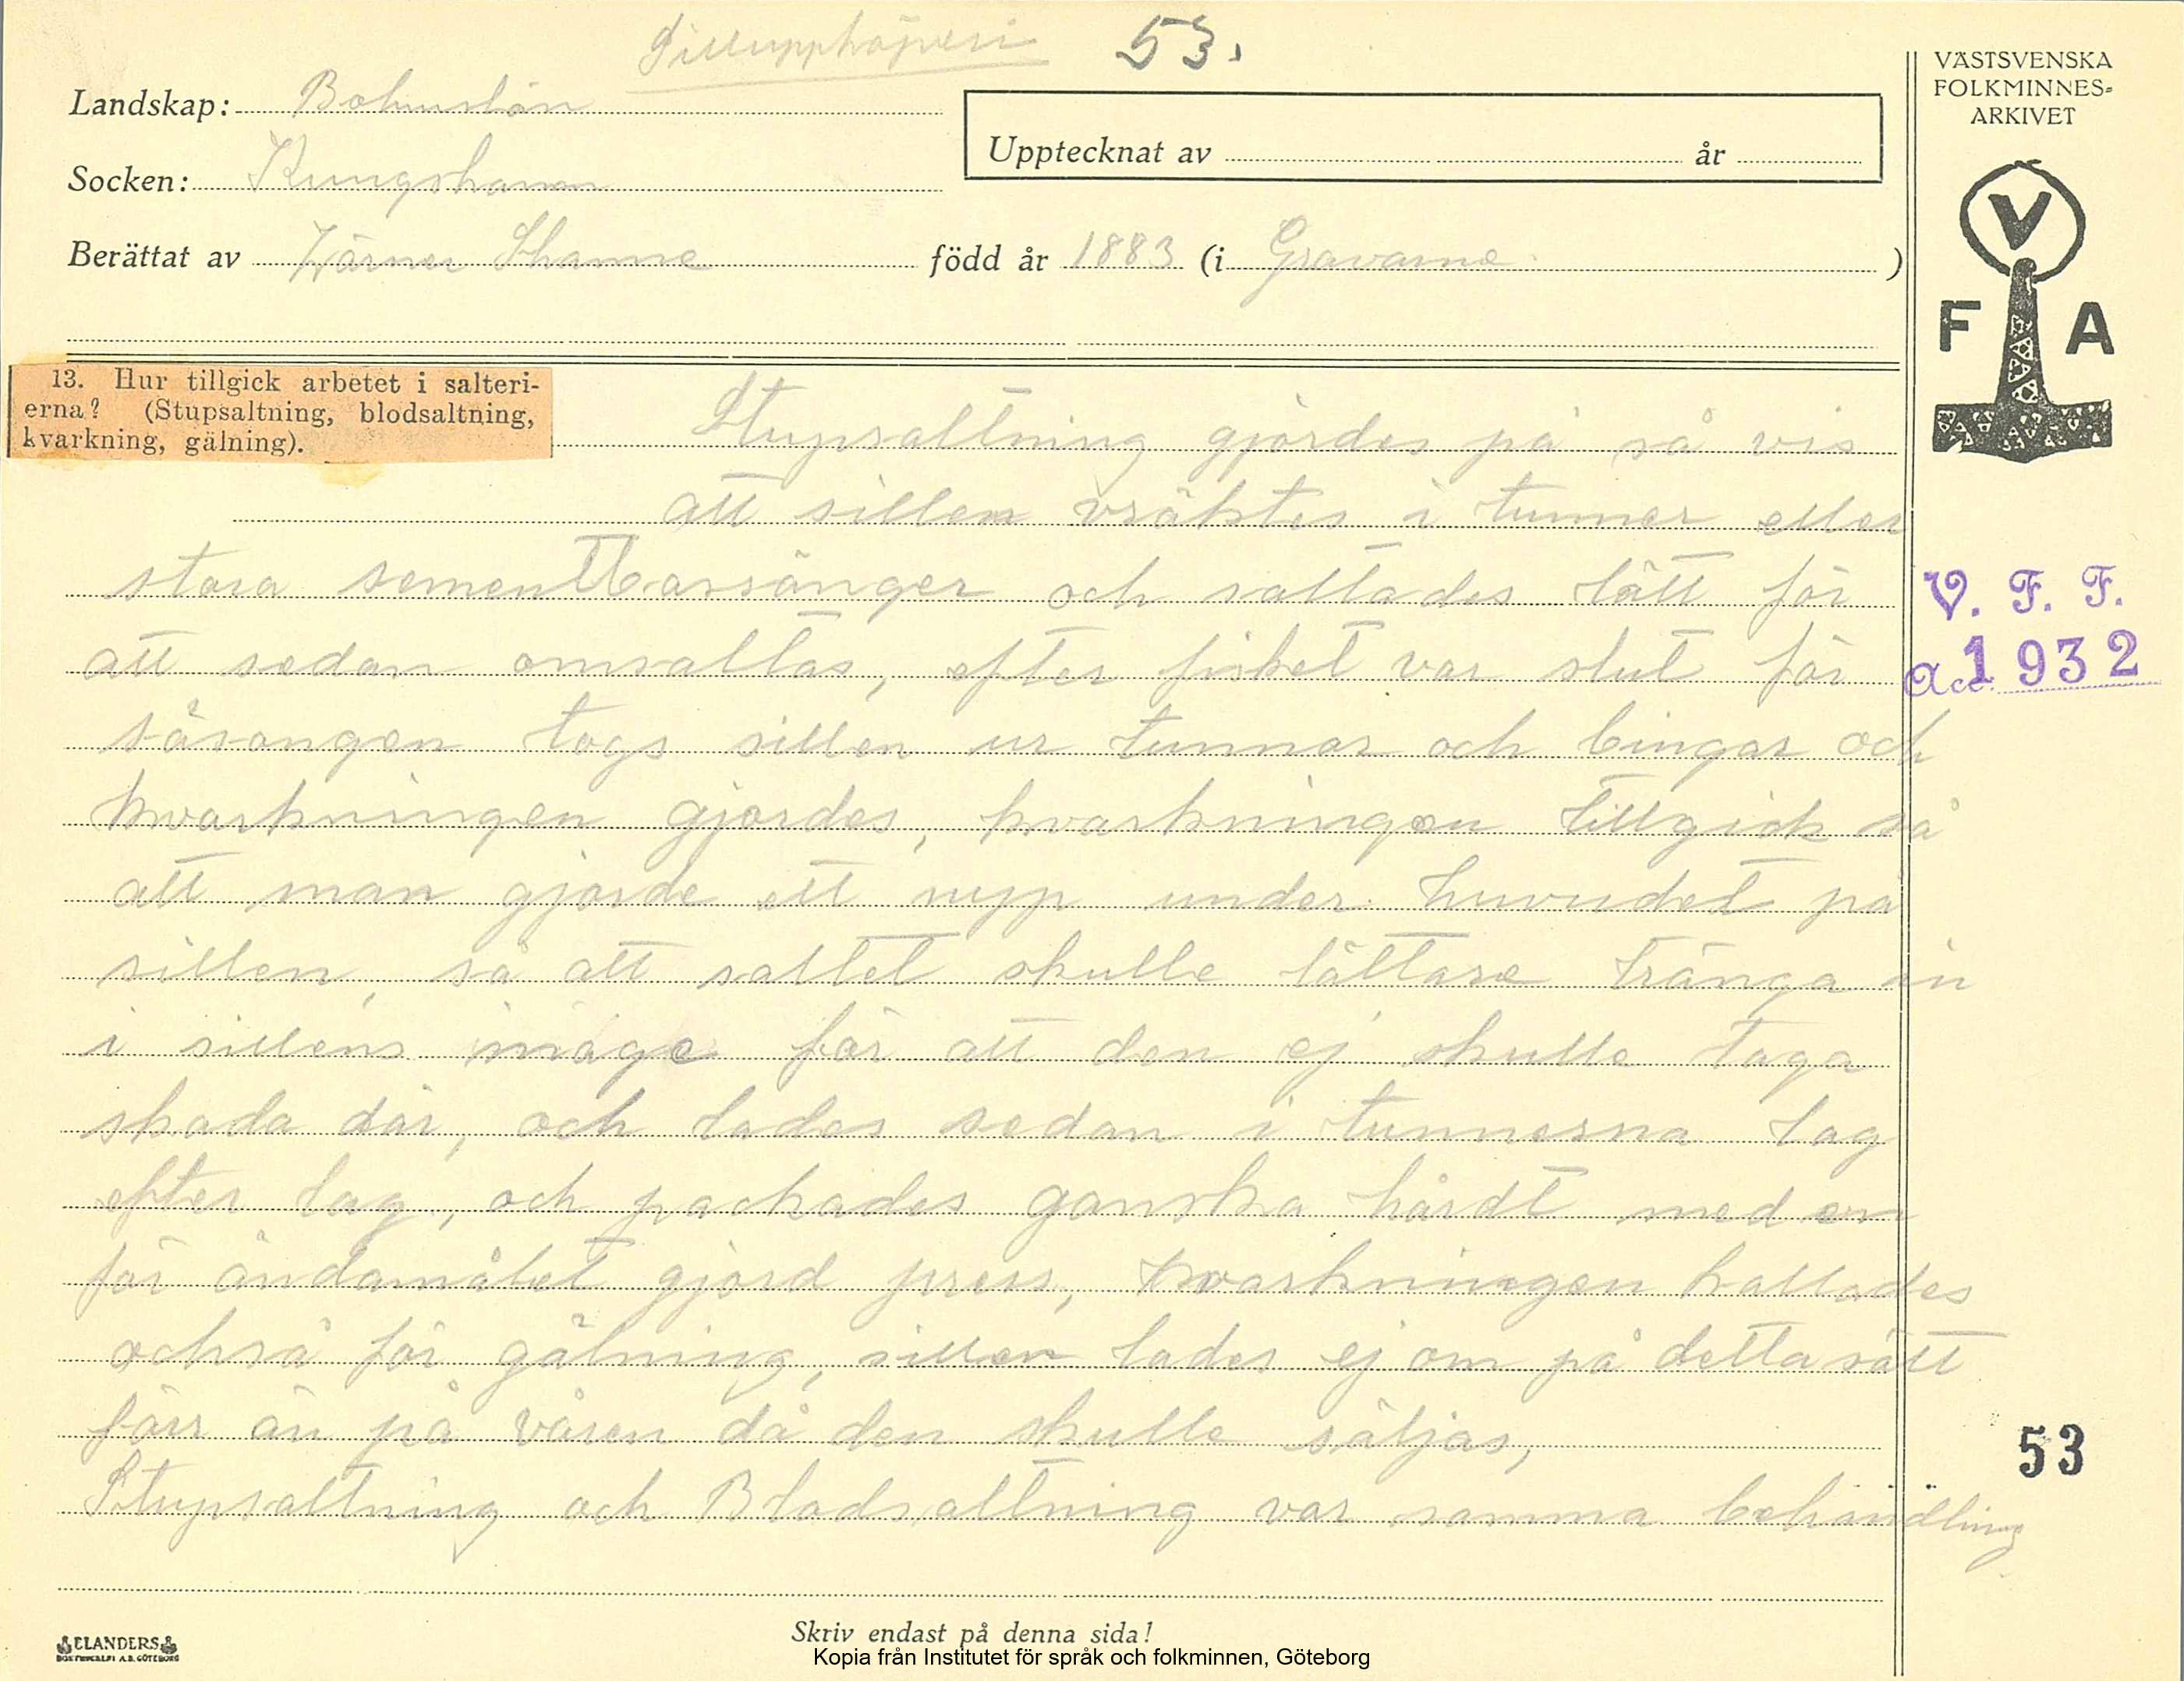 Silluppköpveri 53.
Landskap: Bohuslän
Socken: Kungshamn
Berättat av Wärner Shanne född år 1883 (i Gravarne.)
Upptecknat av år
VÄSTSVENSKA
FOLKMINNES-
ARKIVET
V
F A
13. Hur tillgick arbetet i salteri-
erna? (Stupsaltning, blodsaltning,
kvarkning, gälning).
Stupsaltning gjordes på så vis
att sillen vräktes i tunnor eller
stora sementbassänger och saltades lätt för
att sedan omsaltas, efter fisket var slut för
säsongen togs sillen ur tunnor och bingar och
kvarkningen gjordes, kvarkningen tillgick så
att man gjorde ett nyp under huvudet på
sillen, så att saltet skulle lättare tränga in
i sillens mage för att den ej skulle taga
skada där, och lades sedan i tunnorna lag
efter lag, och packades ganska hårdt med en
för ändamålet gjord press, kvarkningen kallades
också för gälning, sillen lades ej om på detta sätt
förr än på våren då den skulle säljas,
Stupsaltning och Blodsaltning var samma behandling
V. F. F.
Acc. 1932
53
Skriv endast på denna sida!
ELANDERS
BOKTRYCKERI A.B. GÖTEBORG
Kopia från Institutet för språk och folkminnen, Göteborg